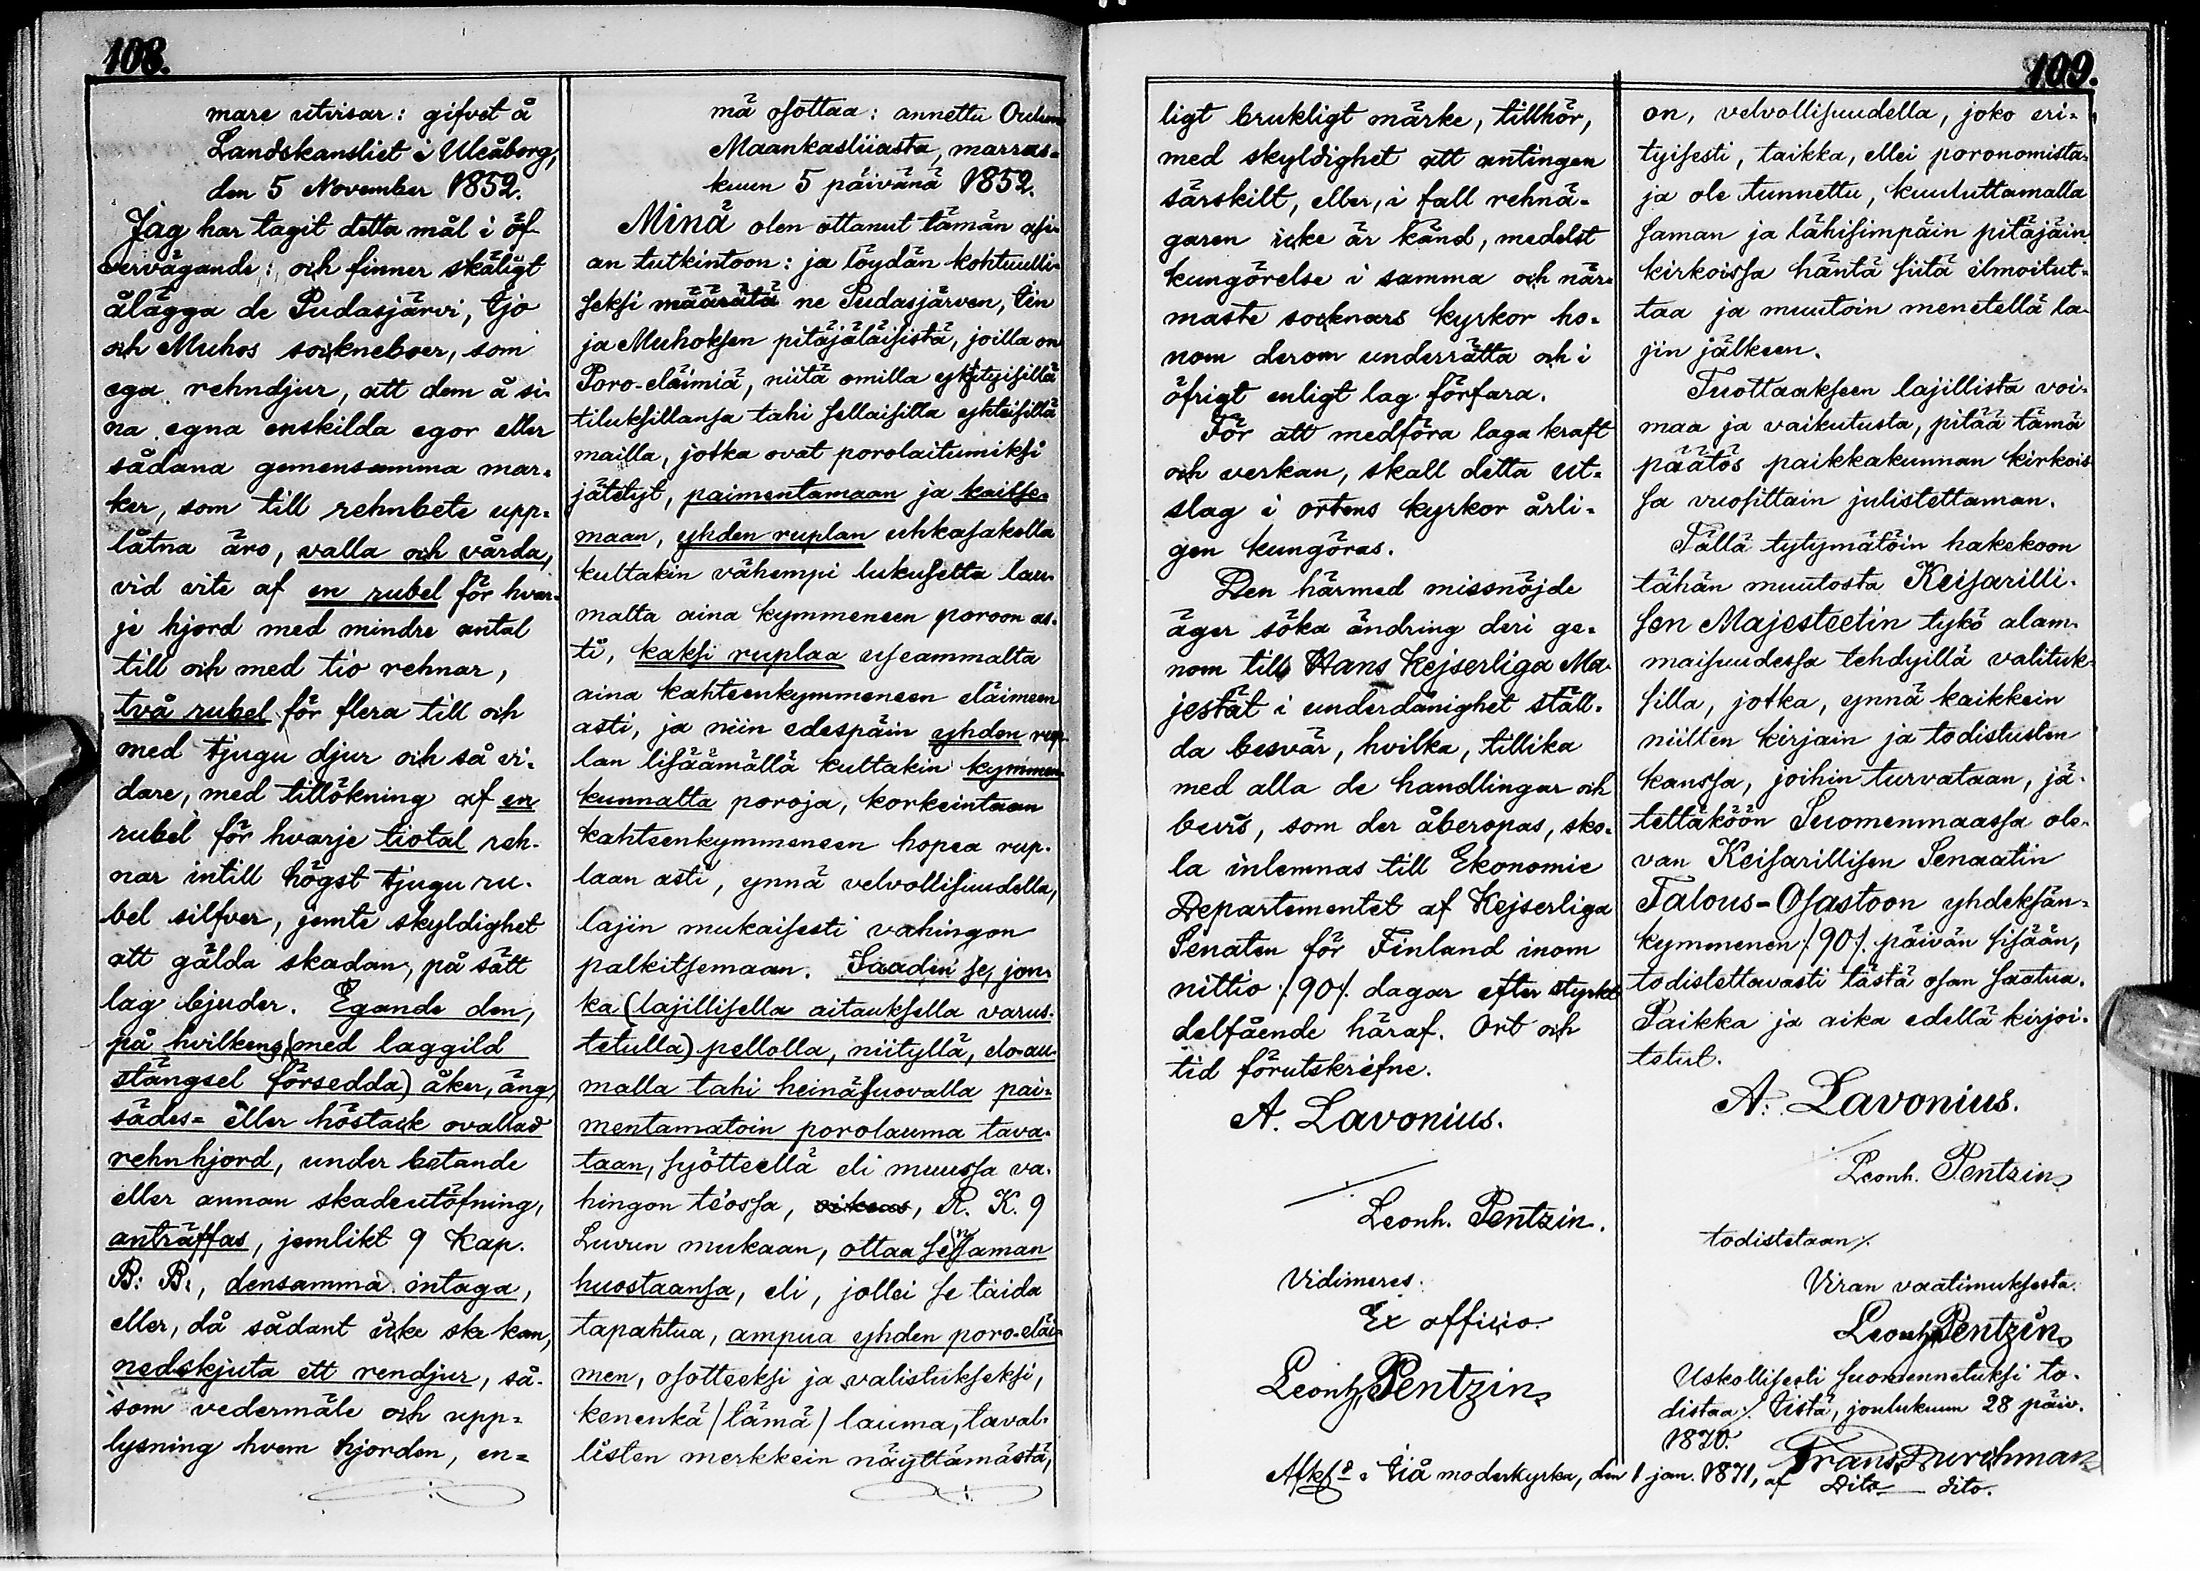 108.
mare utvisar: gifvet å
Landskansliet i Uleåborg,
den 5 November 1852.
Jag har tagit detta mål i öf
vervägande: och finner skäligt
ålägga de Pudasjärvi, Ijo
och Muhos sockneboer, som
ega rehndjur, att dem å si-
na egna enskilda egor eller
sådana gemensamma mar-
ker, som till rehnbete upp-
låtna äro, valla och vårda,
vid vite af en rubel för hvar-
je hjord med mindre antal
till och med tio rehnar,
två rubel för flera till och
med tjugu djur och så vi-
dare, med tillökning af en
rubel för hvarje tiotal reh-
nar intill högst tjugu ru-
bel silfver, jemte skyldighet
att gälda skadan, på sätt
lag bjuder. Egande den,
på hvilkens (med laggild
stängsel försedda) åker, äng,
sädes- eller höstack ovallad
rehnhjord, under betande
eller annan skadeutöfning,
anträffas, jemlikt 9 Kap.
B: B:, densamma intaga,
eller, då sådant icke ske kan,
nedskjuta ett rendjur, så-
som vedermäle och upp-
lysning hvem hjorden, en-
mä osottaa: annettu Oulun
Maankasliiasta, marras-
kuun 5 päivänä 1852.
Minä olen ottanut tämän asi-
an tutkintoon: ja löydän kohtuulli-
seksi määrätä ne Pudasjärven, Iin
ja Muhoksen pitäjäläisistä, joilla on
Poro-eläimiä, niitä omilla yksityisillä
tiluksillansa tahi sellaisilla yhteisillä
mailla, jotka ovat porolaitumiksi
jätetyt, paimentamaan ja kaitse-
maan, yhden ruplan uhkasakolla
kultakin vähempi lukuselta lau-
malta aina kymmeneen poroon as-
ti, kaksi ruplaa useammalta
aina kahteenkymmeneen eläimeen
asti, ja niin edespäin yhden rup-
lan lisäämällä kultakin kymmen-
kunnalta poroja, korkeintaan
kahteenkymmeneen hopea rup-
laan asti, ynnä velvollisuudella,
lajin mukaisesti vahingon
palkitsemaan. Saaden se, jon-
ka (lajillisella aitauksella varus-
tetulla) pellolla, niityllä, elo-au-
malla tahi heinäsuovalla pai-
mentamatoin porolauma tava-
taan, syötteellä eli muussa va-
hingon te'ossa, R. K. 9
Luvun mukaan, ottaa sen saman
huostaansa, eli, jollei se täida
tapahtua, ampua yhden poro-eläi-
men, osotteeksi ja valistukseksi,
kenenkä /tämä/ lauma, taval-
listen merkkein näyttämästä,
109.
ligt brukligt märke, tillhör,
med skyldighet att antingen
särskilt, eller, i fall rehnä-
garen icke är känd, medelst
kungörelse i samma och när-
maste socknars kyrkor ho-
nom derom underrätta och i
öfrigt enligt lag förfara.
För att medföra laga kraft
och verkan, skall detta ut-
slag i ortens kyrkor årli-
gen kungöras.
Den härmed missnöjde
äger söka ändring deri ge-
nom till Hans Kejserliga Ma-
jestät i underdånighet ställ-
da besvär, hvilka, tillika
med alla de handlingar och
bevis, som der åberopas, sko-
la inlemnas till Ekonomie
Departementet af Kejserliga
Senaten för Finland inom
nittio /.90/. dagar efter styrkt
delfående häraf. Ort och
tid förutskrefne.
A. Lavonius.
Leonh. Pentzin.
Vidimeres.
Ex officio.
Leonh. Pentzin
on, velvollisuudella, joko eri-
tyisesti, taikka, ellei poronomista-
ja ole tunnettu, kuuluttamalla
saman ja lähisimpäin pitäjäin
kirkoissa häntä siitä ilmoitut-
taa ja muutoin menetellä la-
jin jälkeen.
Tuottaakseen lajillista voi-
maa ja vaikutusta, pitää tämä
päätös paikkakunnan kirkois-
sa vuosittain julistettaman.
Tällä tytymätöin hakekoon
tähän muutosta Keisarilli-
sen Majesteetin tykö alam-
maisuudessa tehdyillä valituk-
silla, jotka, ynnä kaikkein
niitten kirjain ja todistusten
kanssa, joihin turvataan, jä-
tettäköön Suomenmaassa ole-
van Keisarillisen Senaatin
Talous-Osastoon yhdeksän-
kymmenen /.90/. päivän sisään,
todistettavasti tästä osan saatua.
Paikka ja aika edellä kirjoi-
tetut.
A. Lavonius.
Leonh. Pentzin
todistetaan/.
Viran vaatimuksesta.
Leonh. Pentzin
Uskollisesti suomennetuksi to-
distaa/. Iistä, joulukuun 28 päiv.
1870.
Frans Durchman
Afkds i Iiå moderkyrka, den 1 jan. 1871, af Dito dito.